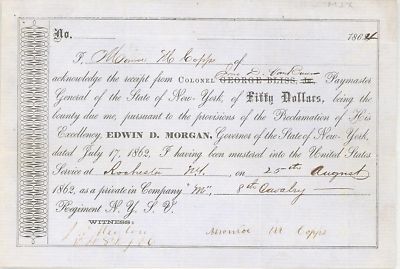 No. 1862
I, Monroe M Copps of
acknowledge the receipt from COLONEL GEORGE BLISS, Jr., Paymaster
General of the State of New-York, of Fifty Dollars, being the
bounty due me, pursuant to the provisions of the Proclamation of His
Excellency, EDWIN D. MORGAN, Governor of the State of New-York,
dated July 17, 1862, I having been mustered into the United States
Service at Rochester NY. on 25th August
1862, as a private in Company "M", 8th Cavalry
Regiment N. Y. S. V.
WITNESS:
Monroe M Copps